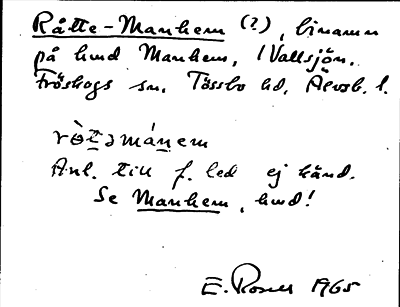 Råtte-Manhem (?), binamn
på hmd Manhem, i Vallsjön.
Fröskogs sn. Tössbo hd, Älvsb. l.
rètəmánem
Anl. till f. led ej känd.
Se Manhem, hmd!
E. Rosell 1965